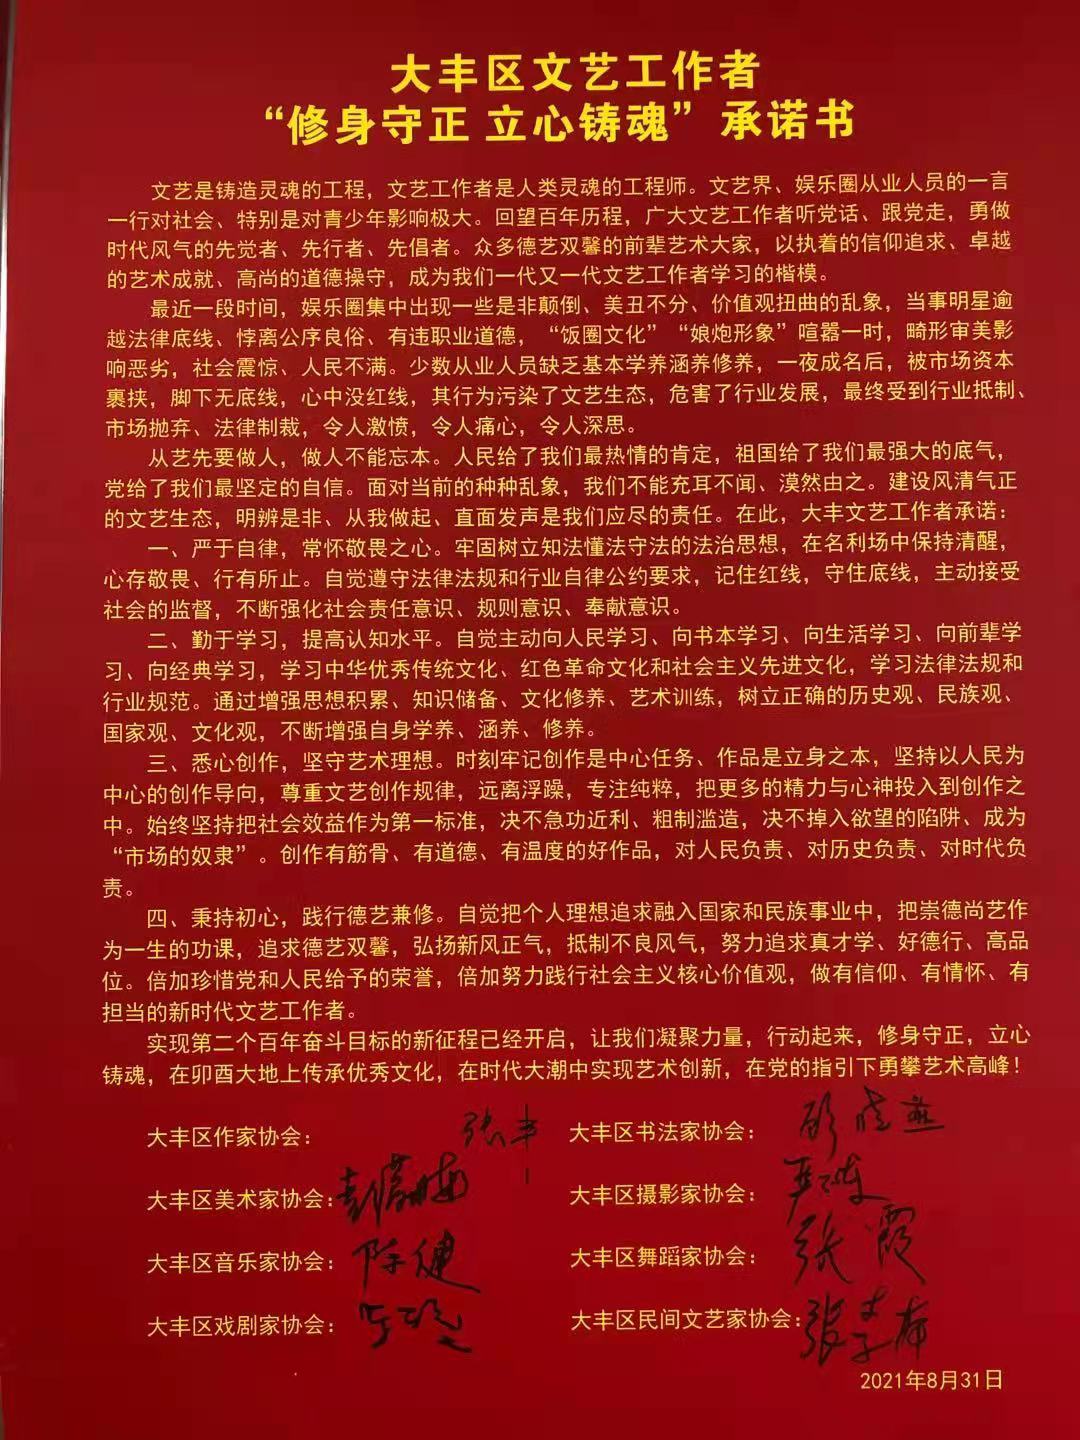 大丰区文艺工作者
“修身守正 立心铸魂”承诺书
文艺是铸造灵魂的工程，文艺工作者是人类灵魂的工程师。文艺界、娱乐圈从业人员的一言
一行对社会、特别是对青少年影响极大。回望百年历程，广大文艺工作者听党话、跟党走，勇做
时代风气的先觉者、先行者、先倡者。众多德艺双馨的前辈艺术大家，以执着的信仰追求、卓越
的艺术成就、高尚的道德操守，成为我们一代又一代文艺工作者学习的楷模。
最近一段时间，娱乐圈集中出现一些是非颠倒、美丑不分、价值观扭曲的乱象，当事明星逾
越法律底线、悖离公序良俗、有违职业道德，“饭圈文化”“娘炮形象”喧嚣一时，畸形审美影
响恶劣，社会震惊、人民不满。少数从业人员缺乏基本学养涵养修养，一夜成名后，被市场资本
裹挟，脚下无底线，心中没红线，其行为污染了文艺生态，危害了行业发展，最终受到行业抵制、
市场抛弃、法律制裁，令人激愤，令人痛心，令人深思。
从艺先要做人，做人不能忘本。人民给了我们最热情的肯定，祖国给了我们最强大的底气，
党给了我们最坚定的自信。面对当前的种种乱象，我们不能充耳不闻、漠然由之。建设风清气正
的文艺生态，明辨是非、从我做起、直面发声是我们应尽的责任。在此，大丰文艺工作者承诺：
一、严于自律，常怀敬畏之心。牢固树立知法懂法守法的法治思想，在名利场中保持清醒，
心存敬畏、行有所止。自觉遵守法律法规和行业自律公约要求，记住红线，守住底线，主动接受
社会的监督，不断强化社会责任意识、规则意识、奉献意识。
二、勤于学习，提高认知水平。自觉主动向人民学习、向书本学习、向生活学习、向前辈学
习、向经典学习，学习中华优秀传统文化、红色革命文化和社会主义先进文化，学习法律法规和
行业规范。通过增强思想积累、知识储备、文化修养、艺术训练，树立正确的历史观、民族观、
国家观、文化观，不断增强自身学养、涵养、修养。
三、悉心创作，坚守艺术理想。时刻牢记创作是中心任务、作品是立身之本，坚持以人民为
中心的创作导向，尊重文艺创作规律，远离浮躁，专注纯粹，把更多的精力与心神投入到创作之
中。始终坚持把社会效益作为第一标准，决不急功近利、粗制滥造，决不掉入欲望的陷阱、成为
“市场的奴隶”。创作有筋骨、有道德、有温度的好作品，对人民负责、对历史负责、对时代负
责。
四、秉持初心，践行德艺兼修。自觉把个人理想追求融入国家和民族事业中，把崇德尚艺作
为一生的功课，追求德艺双馨，弘扬新风正气，抵制不良风气，努力追求真才学、好德行、高品
位。倍加珍惜党和人民给予的荣誉，倍加努力践行社会主义核心价值观，做有信仰、有情怀、有
担当的新时代文艺工作者。
实现第二个百年奋斗目标的新征程已经开启，让我们凝聚力量，行动起来，修身守正，立心
铸魂，在卯酉大地上传承优秀文化，在时代大潮中实现艺术创新，在党的指引下勇攀艺术高峰！
大丰区作家协会： 张丰
大丰区书法家协会：
大丰区美术家协会：
大丰区摄影家协会：
大丰区音乐家协会： 陈健
大丰区舞蹈家协会： 张霞
大丰区戏剧家协会：
大丰区民间文艺家协会：
2021年8月31日